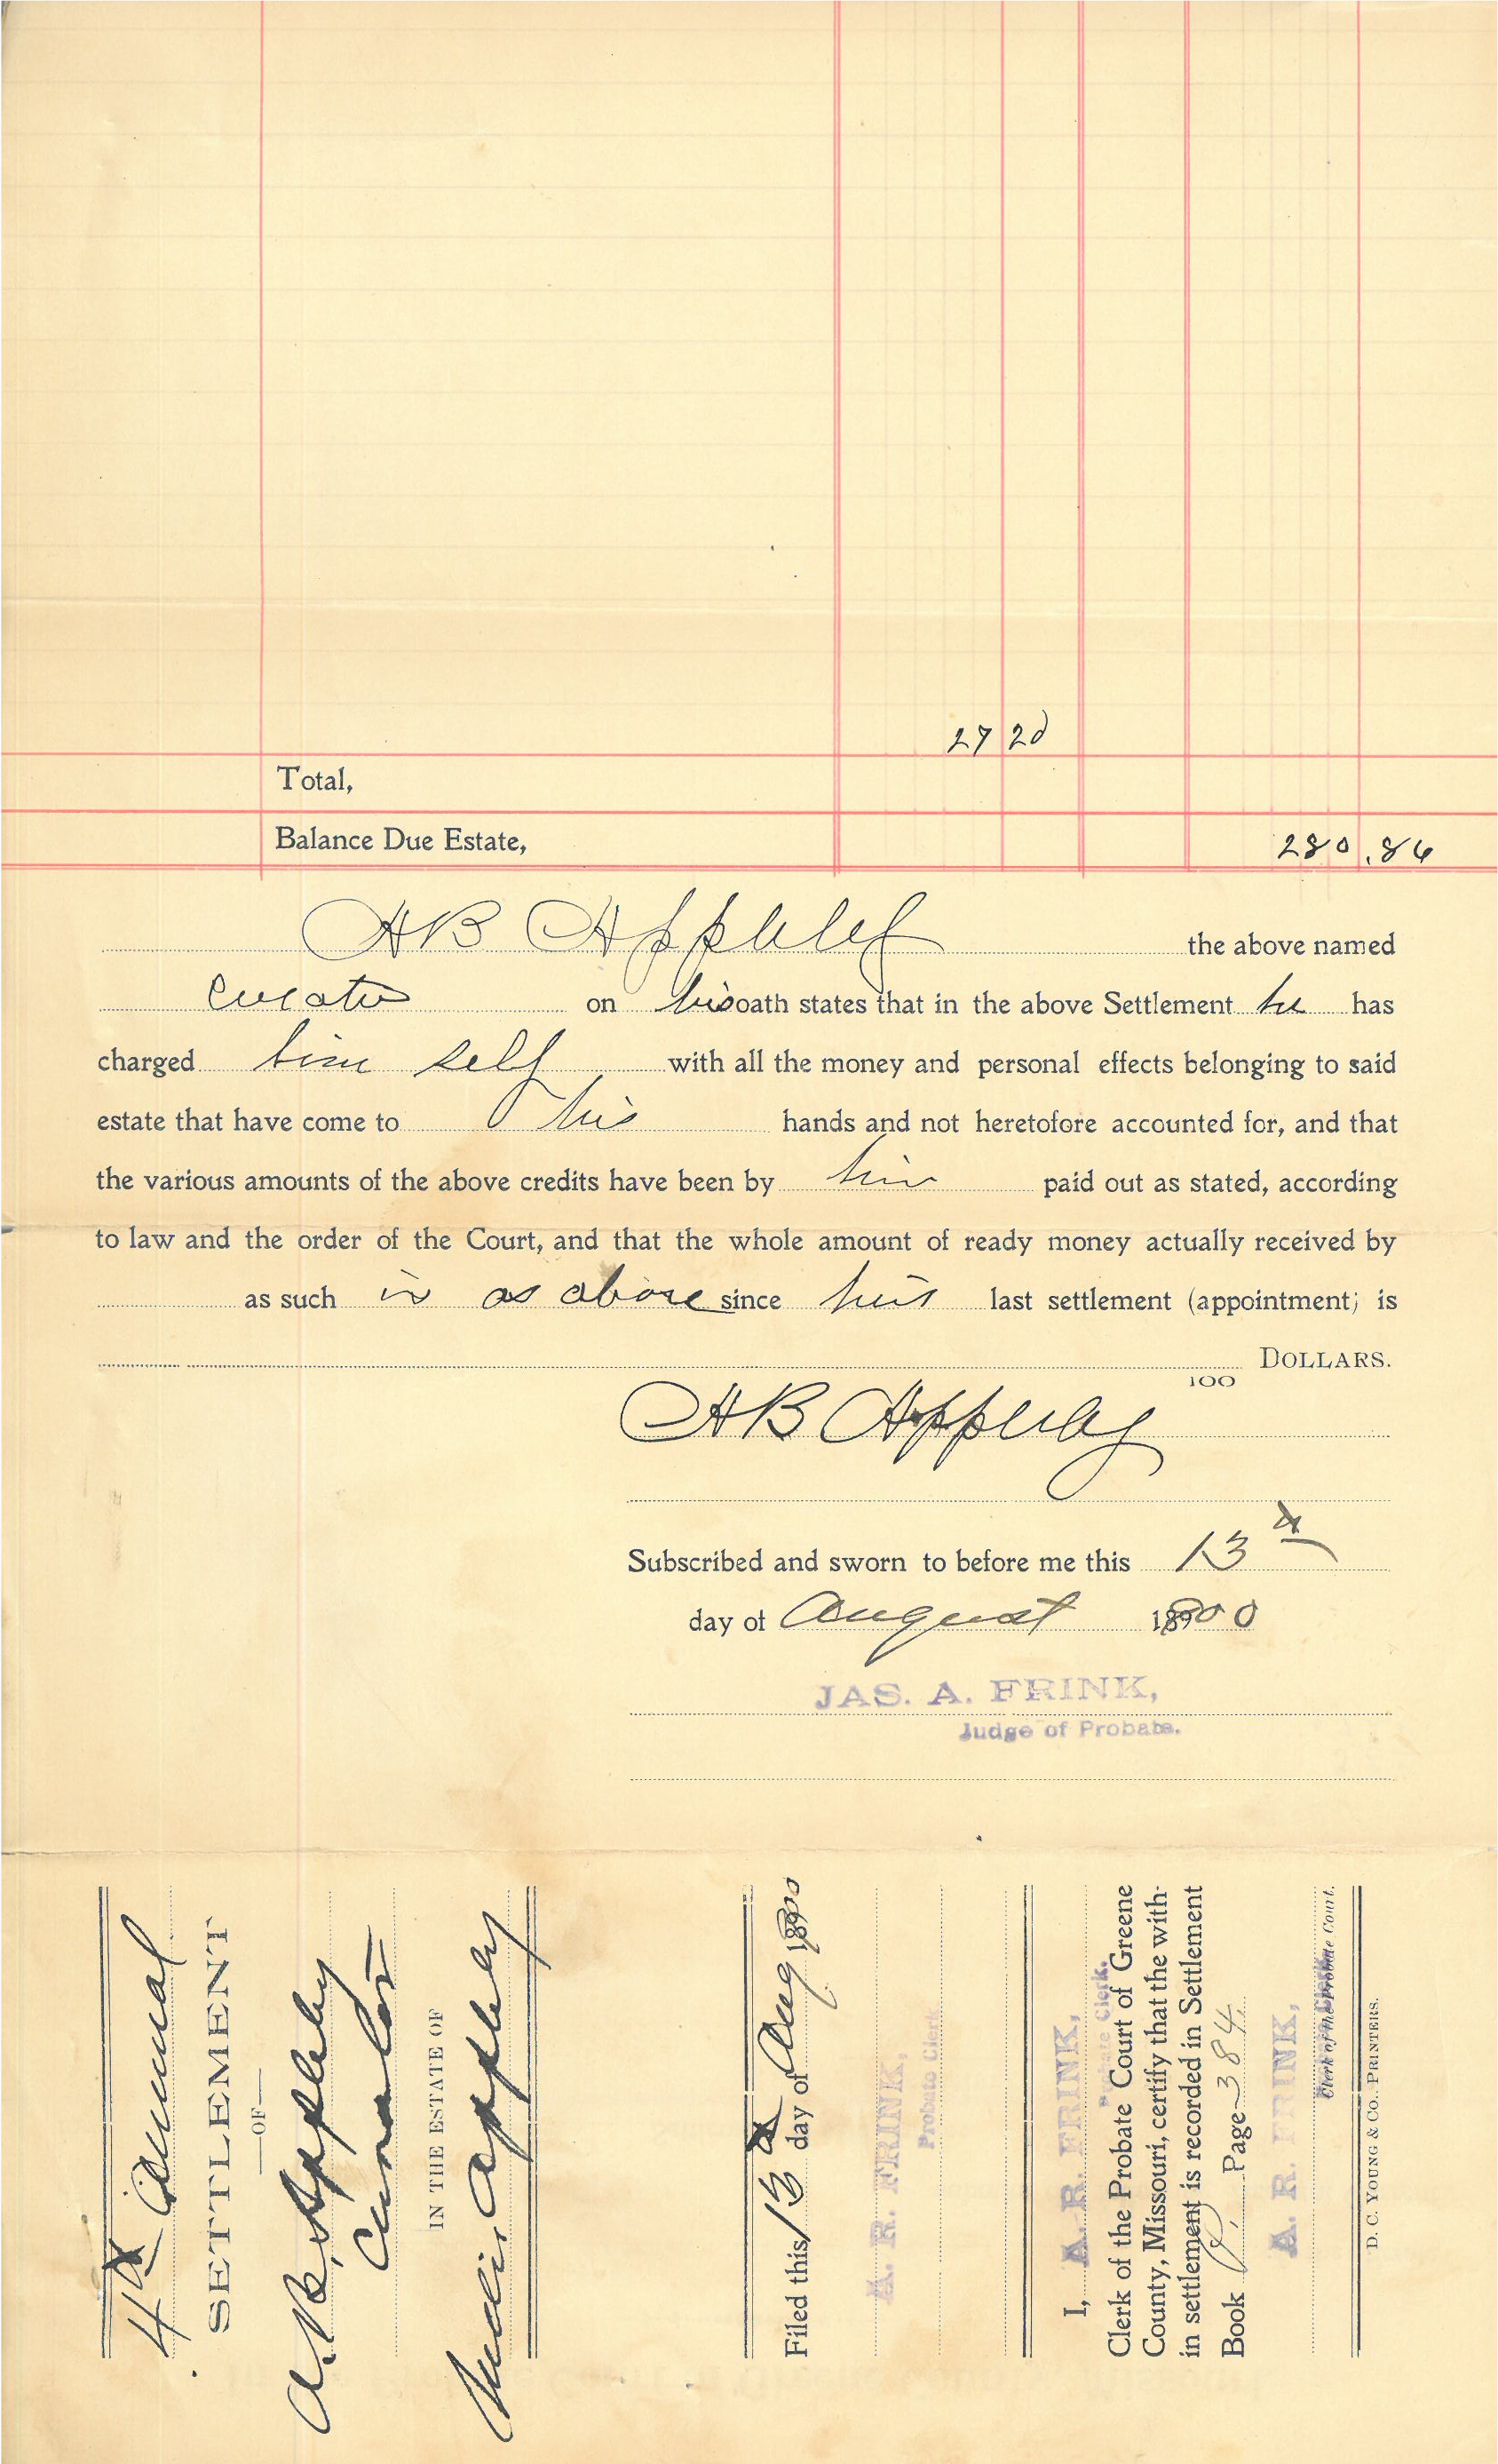 27 20
Total,
Balance Due Estate, 280.86
A B Appleby the above named
curator on his oath states that in the above Settlement he has
charged him self with all the money and personal effects belonging to said
estate that have come to his hands and not heretofore accounted for, and that
the various amounts of the above credits have been by him paid out as stated, according
to law and the order of the Court, and that the whole amount of ready money actually received by
as such is as above since his last settlement (appointment; is
DOLLARS.
100
A B Appleby
Subscribed and sworn to before me this 13th
day of August 1900
JAS. A. FRINK,
Judge of Probate.
4th Annual
SETTLEMENT
—OF—
A. B. Appleby
Curator
IN THE ESTATE OF
Appleby
Filed this 13th day of Aug 1900
A. R. FRINK,
Probate Clerk
I, A. R. FRINK,
Probate Clerk.
Clerk of the Probate Court of Greene
County, Missouri, certify that the with-
in settlement is recorded in Settlement
Book Page 384
A. R. FRINK,
Clerk of the Probate Court.
D. C. YOUNG & CO., PRINTERS.